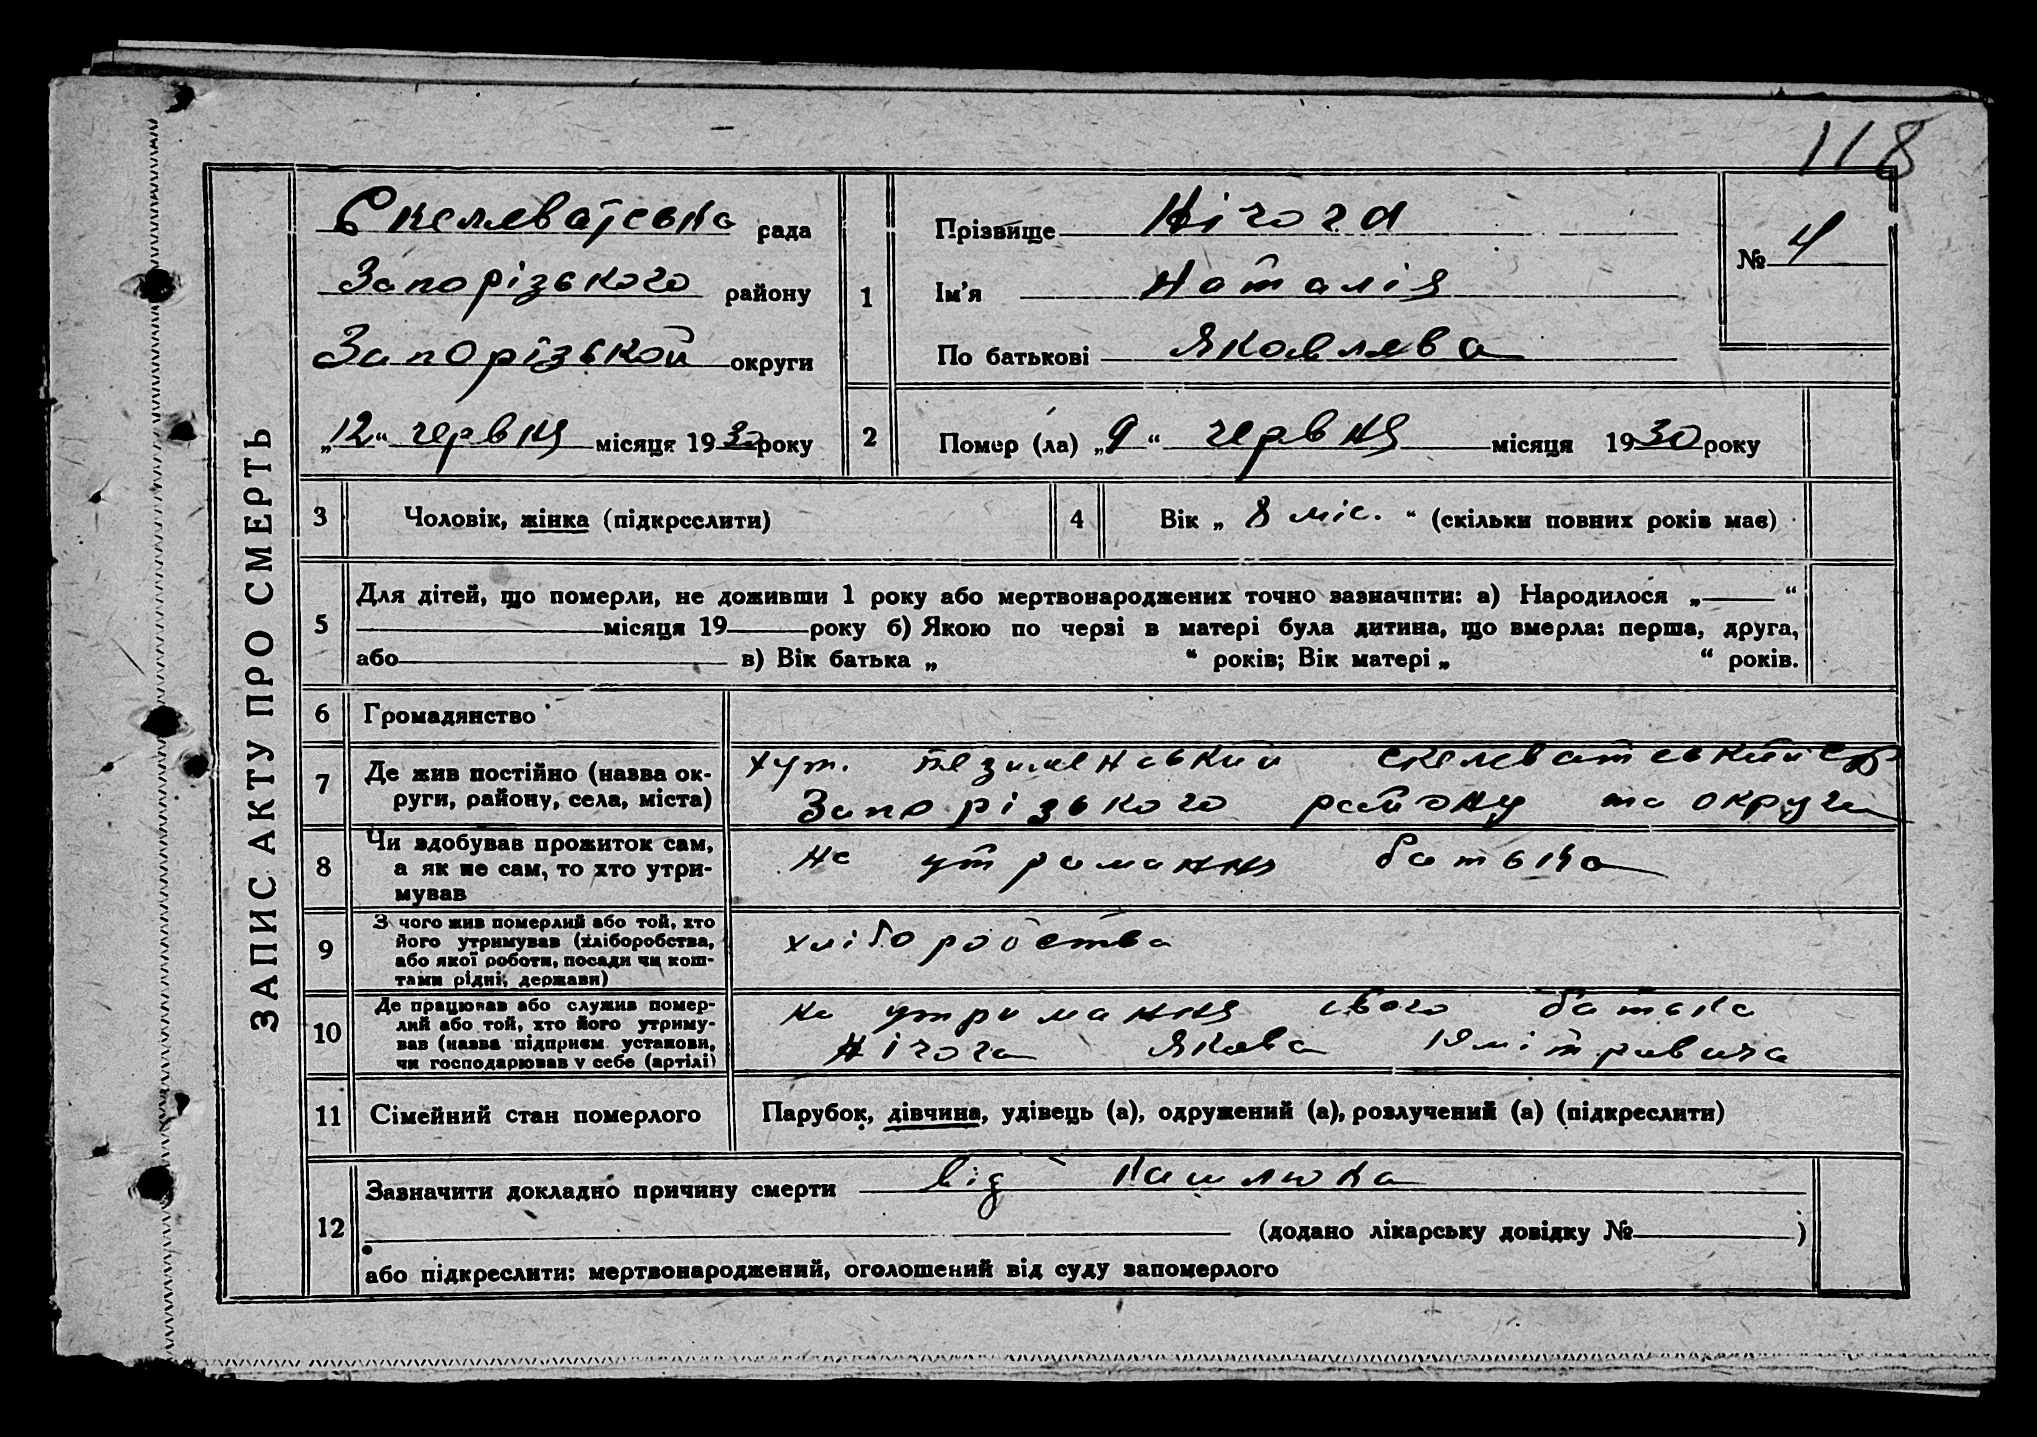 118
ЗАПИС АКТУ ПРО СМЕРТЬ
Скелеватська рада
Запорізького району
Запорізькой округи
„12“ червня місяця 1930 року
1
Прізвище Нічога
Ім'я Наталія
По батькові Яковлева
№ 4
2 Помер (ла) „9“ червня місяця 1930 року
3 Чоловік, жінка (підкреслити)
4 Вік „ 8 міс. “ (скільки повних років має)
5 Для дітей, що померли, не доживши 1 року або мертвонароджених точно зазначити: а) Народилося „ “
місяця 19 року б) Якою по черві в матері була дитина, що вмерла: перша, друга,
або в) Вік батька „ “ років; Вік матері „ “ років.
6 Громадянство
7 Де жив постійно (назва ок-
руги, району, села, міста)
хут. скелеватський с/р
Запорізького району та округи
8 Чи здобував прожиток сам,
а як не сам, то хто утри-
мував
на утримання батька
9 З чого жив померлий або той, хто
його утримував (хліборобства,
або якої роботи, посади чи кош-
тами рідні, держави)
хліборобства
10 Де працював або служив помер-
лий або той, хто його утриму-
вав (назва підприєм. установи,
чи господарював у себе (артілі)
на утримання свого батька
Нічога Якова Дмітровича
11 Сімейний стан померлого
Парубок, дівчина, удівець (а), одружений (а), розлучений (а) (підкреслити)
12 Зазначити докладно причину смерти від кашлюка
(додано лікарську довідку № )
або підкреслити: мертвонароджений, оголошений від суду запомерлого